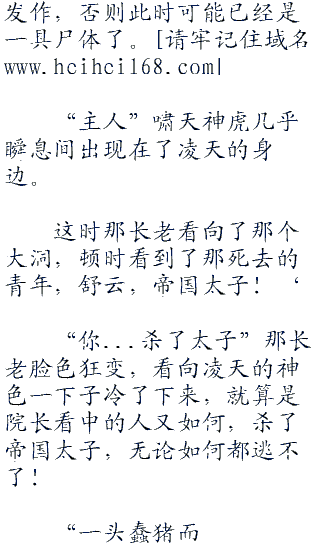 发作，否则此时可能已经是
一具尸体了。[请牢记住域名
www.hcihcil68.com|
“主人”啸天神虎几乎
瞬息间出现在了凌天的身
边。
这时那长老看向了那个
大洞，顿时看到了那死去的
青年，舒云，帝国太子！‘
“你...杀了太子”那长
老脸色狂变，看向凌天的神
色一下子冷了下来，就算是
院长看中的人又如何，杀了
帝国太子，无论如何都逃不
了！
“一头蠢猪而